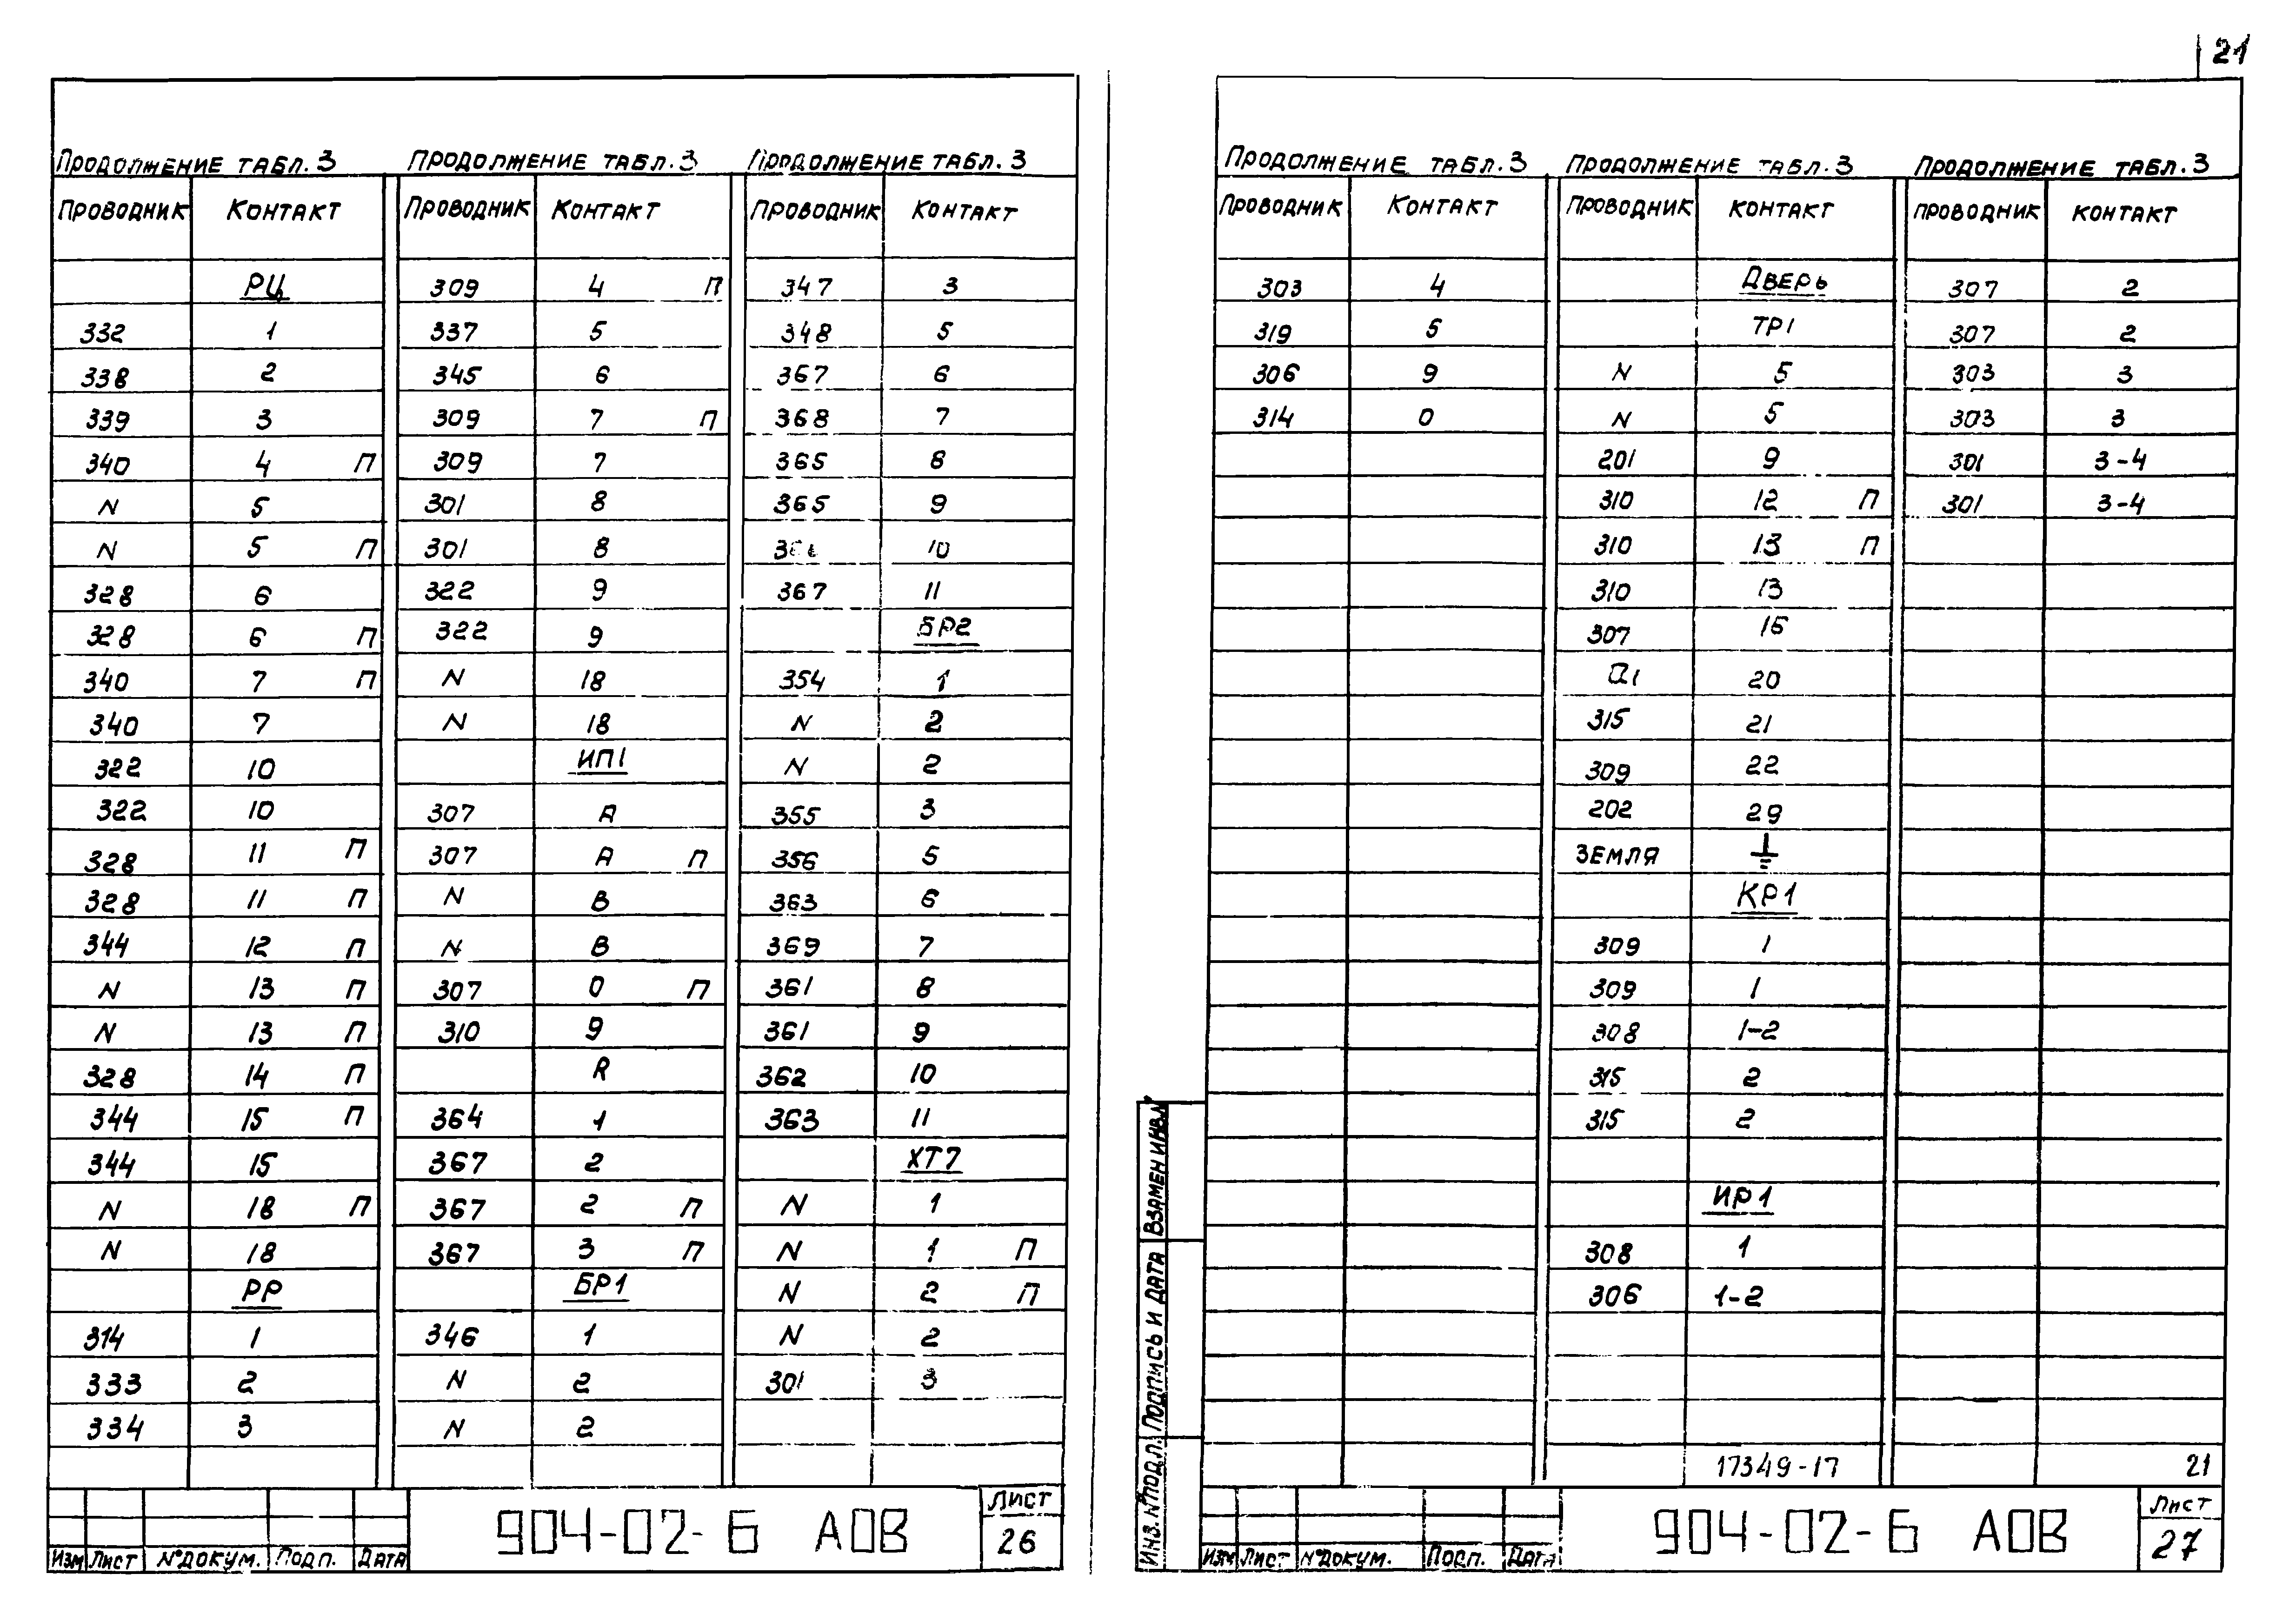 21
Продолжение табл. 3
Проводник Контакт
РЦ
332 1
338 2
339 3
340 4 П
N 5
N 5 П
328 6
328 6 П
340 7 П
340 7
322 10
322 10
328 11 П
328 11 П
344 12 П
N 13 П
N 13 П
328 14 П
344 15 П
344 15
N 18 П
N 18
РР
314 1
333 2
334 3
Продолжение табл. 3
Проводник Контакт
309 4 П
337 5
345 6
309 7 П
309 7
301 8
301 8
322 9
322 9
N 18
N 18
ИП1
307 А
307 А П
N В
N В
307 0 П
310 9
R
364 1
367 2
367 2 П
367 3 П
БР1
346 1
N 2
N 2
Продолжение табл. 3
Проводник Контакт
347 3
348 5
367 6
368 7
365 8
365 9
10
367 11
БР2
354 1
N 2
N 2
355 3
356 5
363 6
369 7
361 8
361 9
362 10
363 11
ХТ7
N 1
N 1 П
N 2 П
N 2
301 3
Изм Лист № докум. Подп. Дата
904-02-6 АОВ
Лист
26
Продолжение табл. 3
Проводник Контакт
303 4
319 5
306 9
314 0
Продолжение табл. 3
Проводник Контакт
Дверь
ТР1
N 5
N 5
201 9
310 12 П
310 13 П
310 13
307 16
a1 20
315 21
309 22
202 29
Земля ⏚
КР1
309 1
309 1
308 1-2
315 2
315 2
ИР1
308 1
306 1-2
17349-17
Продолжение табл. 3
Проводник Контакт
307 2
307 2
303 3
303 3
301 3-4
301 3-4
21
Взамен инв.№
Подпись и дата
Инв. №подл.
Изм Лист № докум. Подп. Дата
904-02-6 АОВ
Лист
27